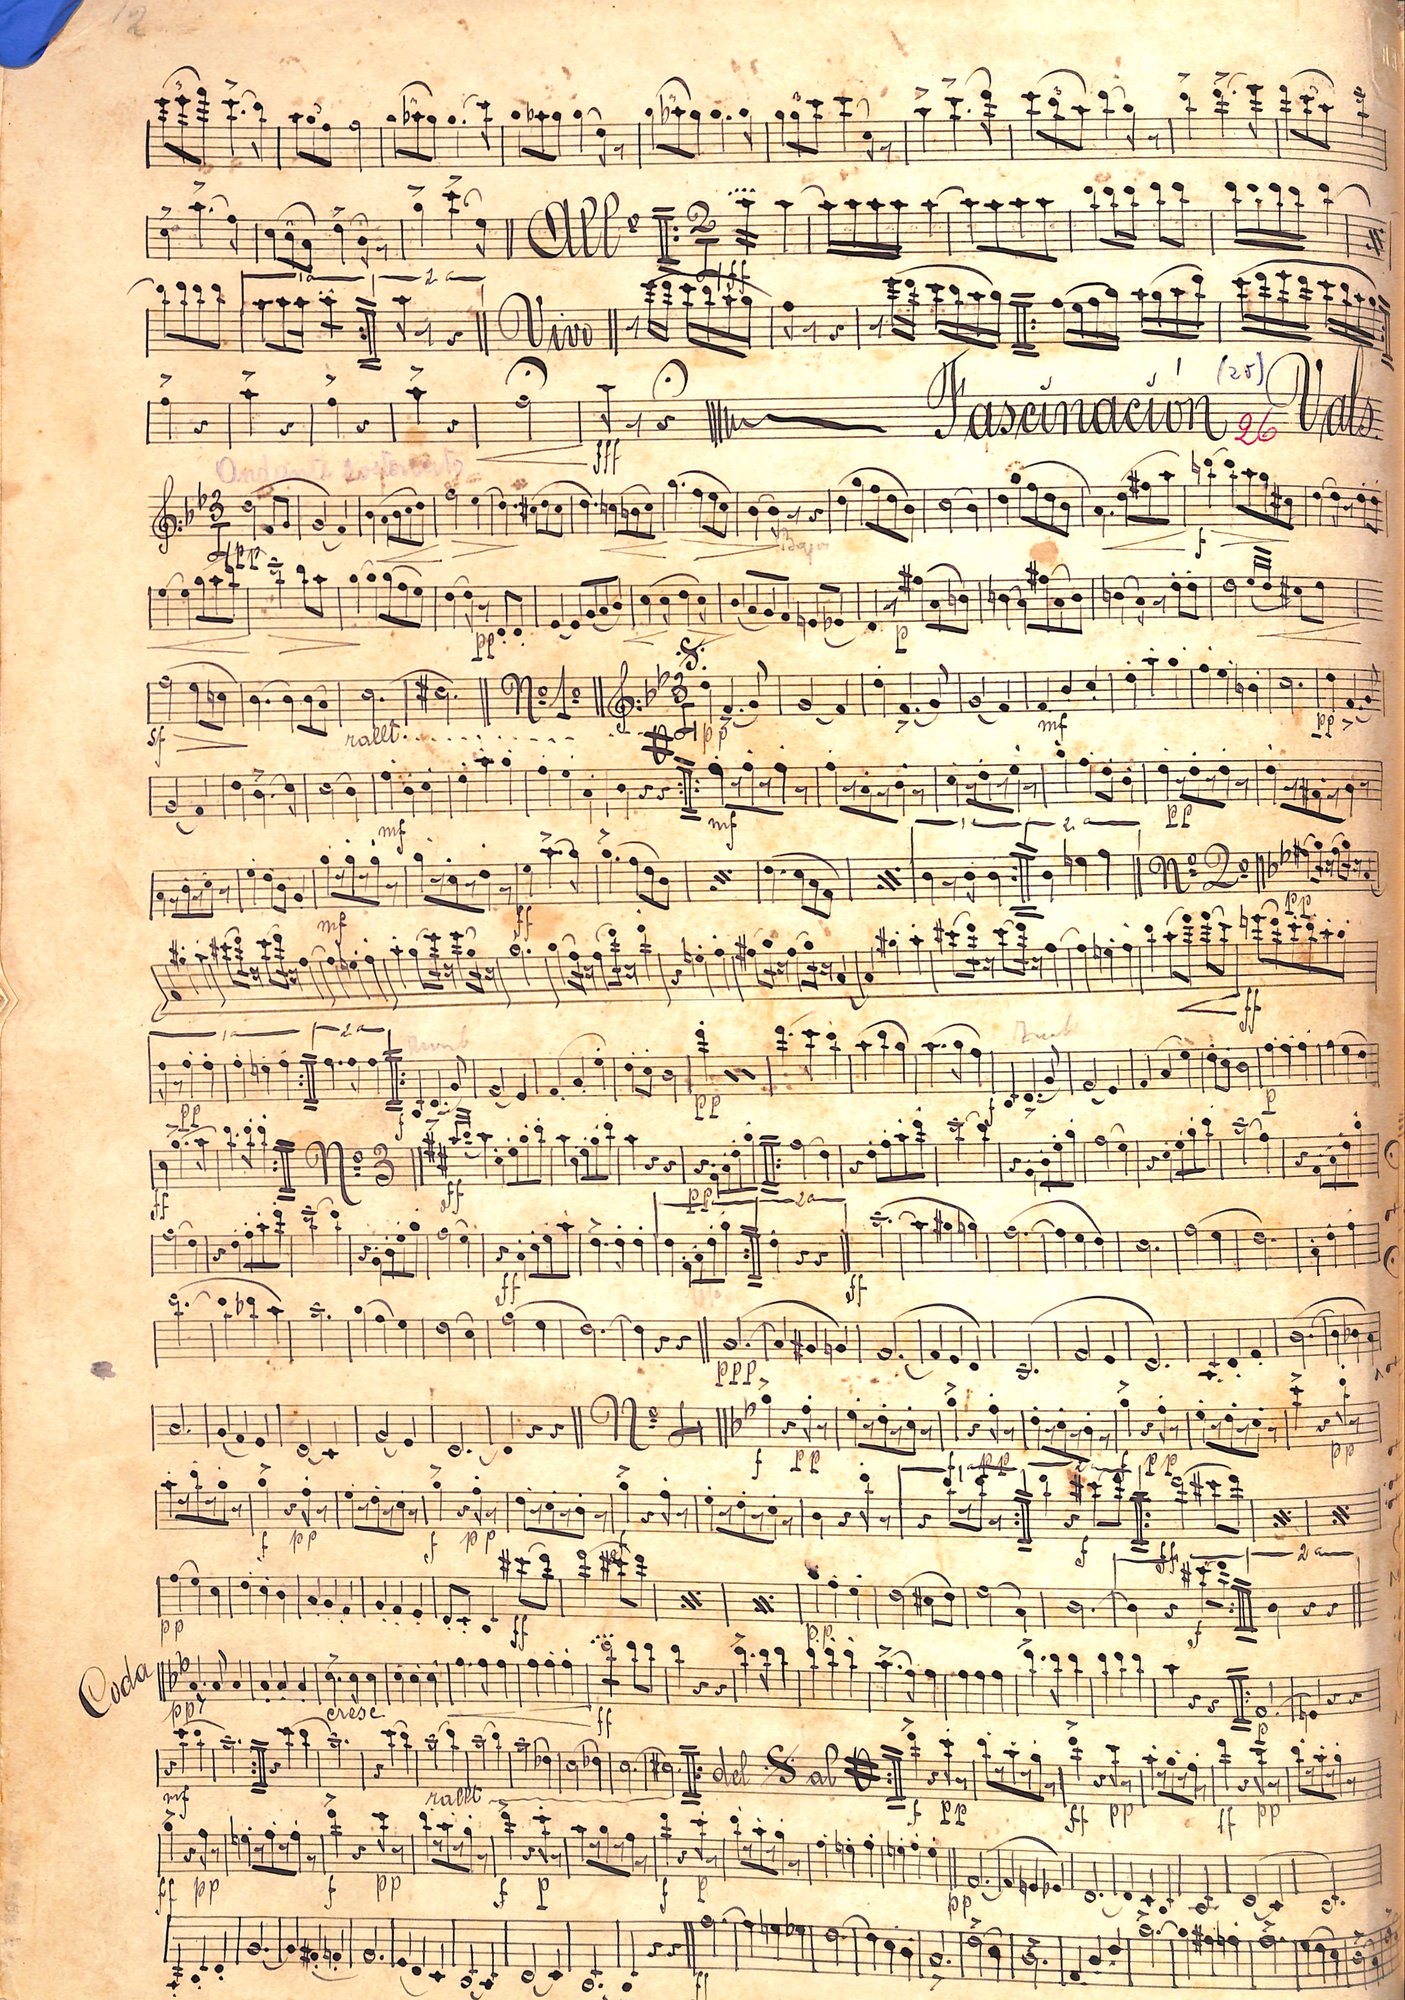 12
All° 2/4
ff
1a 2a
Vivo
fff
Fascinación (25) 26 Vals
3/4 pp f
pp p
sf rallt. Nº 1º 3/4 pp mf pp
mf pp
1 2a
mf ff Nº 2º pp
ff
1a 2a
pp pp p
ff Nº 3 ff pp
2a
ff ff
ppp
Nº 4 f pp f pp f pp pp
1a 2a
f pp f pp f f
ff 2a
pp ff p.p. f
Coda pp cresc ff p
mf rallt del S al f pp ff pp ff pp
ff pp f pp f p f p pp
ff